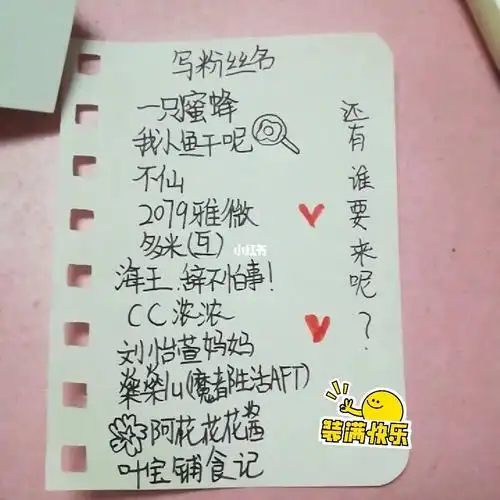 写粉丝名
一只蜜蜂
我小鱼干呢
不仙
2079雅微
多米(互)
海王.辞不怕事!
CC浓浓
刘怡萱妈妈
燊燊lu(魔都生活AFT)
阿花花花酱
叶宝铺食记
还有谁要来呢?
小红书
装满快乐